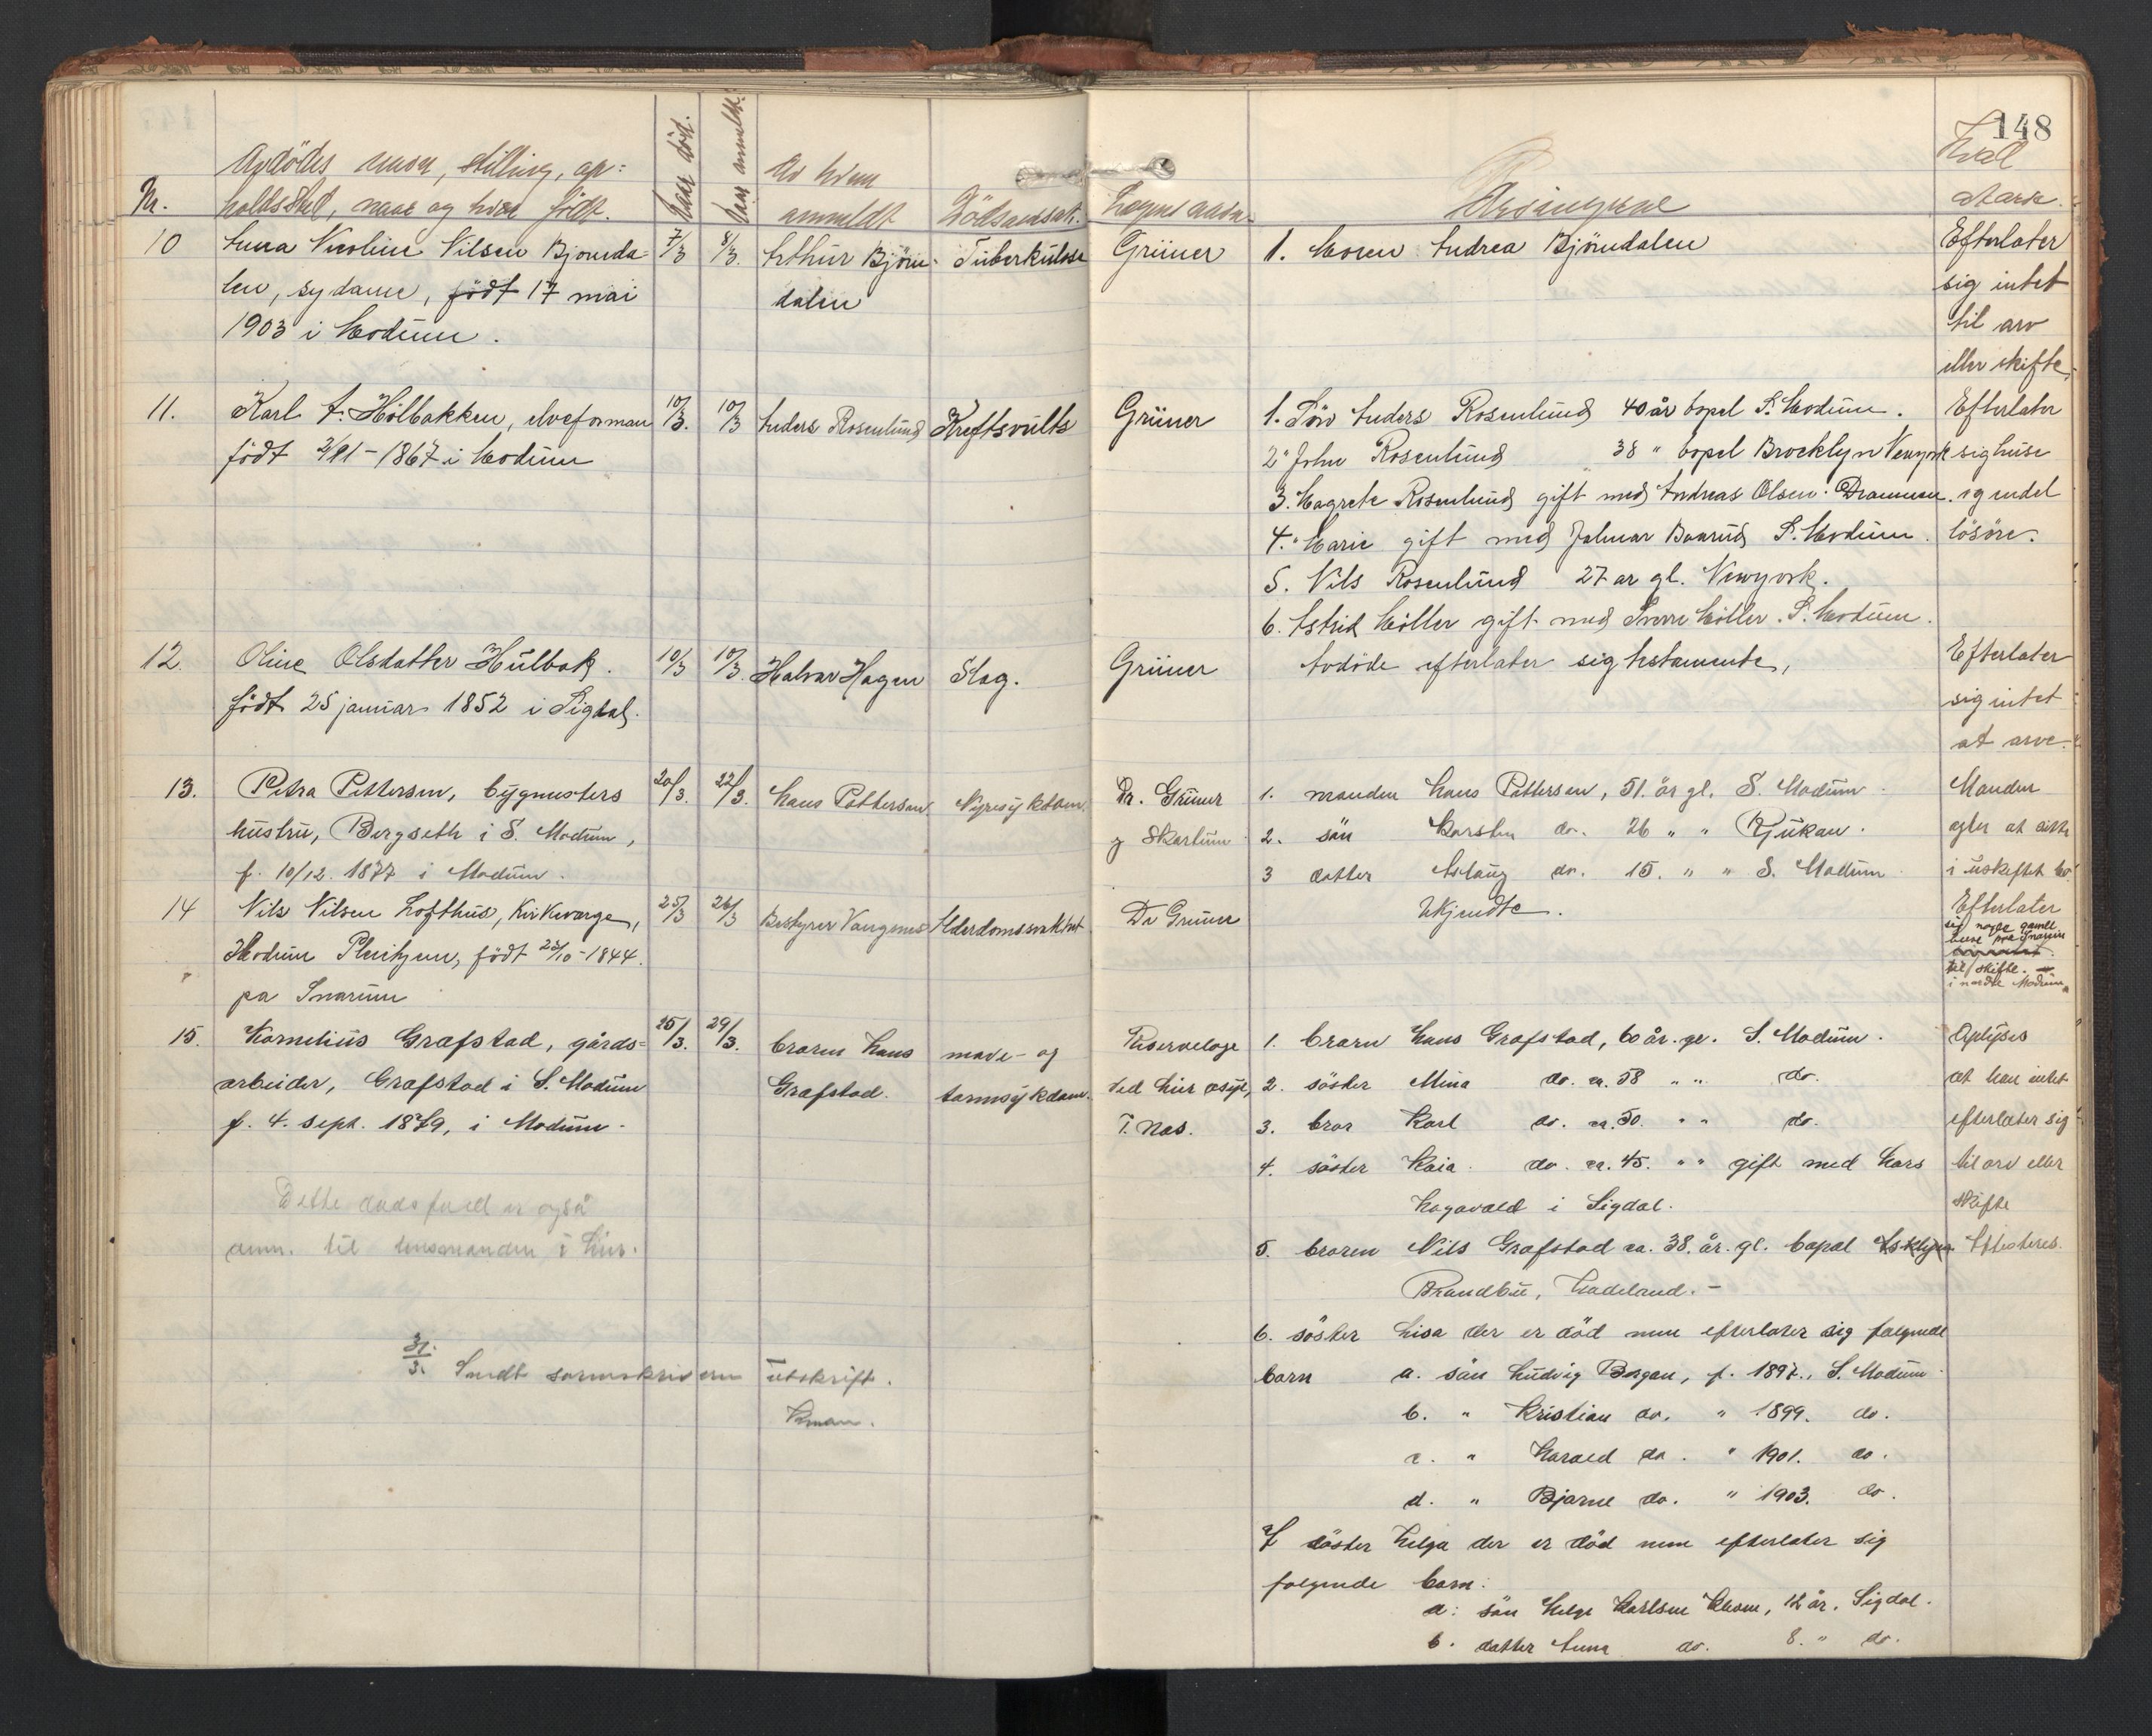 148
Nr.
Avdödes navn, stilling, op=
holdssted, naar og hvor födt.
Naar död.
Naar anmeldt.
Av hvem
anmeldt
Dödsaarsak.
Lægens navn.
Arvingerne
Hvad
10 Anna Nicoline Nilsen Bjørnda- 7/3 8/3. Arthur Björn- Tuberkulose Grüner 1. Moren Andrea Björndalen Efterlater
len, sydame, födt 17 mai dalen sig intet
1903 i Modum. til arv
eller skifte.
11. Karl A. Hölbakken, elveforman 10/3. 10/3 Anders Rosenlund Kreftsvulst Grüner 1. Sön Anders Rosenlund 40 år bopel S. Modum. Efterlater
födt 2/11-1867 i Modum 2" John Rosenlund 38 " bopel Brocklyn Newyork sig huse
3. Magrete Rosenlund gift med Andreas Olsen. Drammen. og endel
4." Marie gift med Jalmar Baarud S. Modum. lösöre.
5. Nils Rosenlund 27 ar gl. Newyork.
6. Astrid Möller gift med Sverre Möller. S. Modum.
12. Oline Olsdatter Hulbak. 10/3 10/3. Halvar Hagen Slag. Grüner Avdöde efterlater sig testamente, Efterlater
födt 25 januar 1852 i Sigdal. sig intet
at arve.
13. Petra Pettersen, bygmesters 20/3. 22/3. Hans Pettersen. Nyresykdom. Dr. Grüner 1. manden Hans Pettersen, 51. år gl. S. Modum. Manden
hustru, Bergseth i S. Modum, og Skartum 2. sön Karsten do. 26 " " Rjukan. agter at sitte
f. 10/12. 1877 i Modum. 3 datter Aslaug do. 15. " " S. Modum i uskiftet bo.
14 Nils Nilsen Lofthus, Kirkeverge, 25/3 26/3 Bestyrer Vangsnes Alderdomssvakhet Dr Grüner Ukjendte. Efterlater
Modum Pleiehjem, födt 23/10-1844. sig nogle gamle
pa Snarum huse paa Snarum
til skifte.
i nordre Modum
15. Kornelius Grafstad, gårds= 25/3. 29/3. broren Hans mave- og Reservelæge 1. broren Hans Grafstad, 60 år. gl. S. Modum. Oplyses
arbeider, Grafstad i S. Modum Grafstad. tarmsykdom. ved Lier asyl, 2. söster Mina do. ca. 58 " " do. at han intet
f. 4. sept. 1879, i Modum. T. Nas. 3. bror Karl do. ca. 50. " " do. efterlater sig
4. söster Kaia do. ca. 45. " " gift med Lars til arv eller
Hagavold i Sigdal. skifte
Dette dødsfald er også
anm. til lensmanden i Lier.
5. broren Nils Grafstad ca. 38. år. gl. bopel Attesteres.
Brandbu, Hadeland.-
6. söster Lisa der er död men efterlater sig følgende
31/3. Sendt sorenskriveren utskrift.
barn a. sön Ludvig Bergan, f. 1897., S. Modum
b. " Kristian do. " 1899. do.
c. " Harald do. " 1901. do.
d. " Bjarne do. " 1903. do.
7 söster Helga der er död men efterlater sig
følgende barn:
a: sön Helge Karlsen Moen, 12 år. Sigdal.
b. datter Anna do. 8. " do.